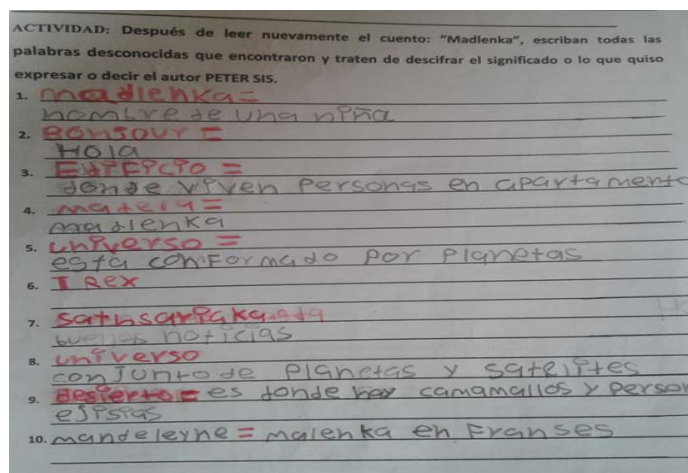 ACTIVIDAD: Después de leer nuevamente el cuento: “Madlenka”, escriban todas las
palabras desconocidas que encontraron y traten de descifrar el significado o lo que quiso
expresar o decir el autor PETER SIS.
1. madlenka=
nombre de una niña
2. BONJOUR =
Hola
3. EDIFICIO =
donde viven Personas en apartamento
4. =
madlenka
5. universo =
esta conformado por Planetas
6. T Rex
7.
buenas noticias
8. universo
conjunto de Planetas y satelites
9. desierto = es donde hay camamallos y person
ejipsias
10. mandeleyne = malenka en Franses